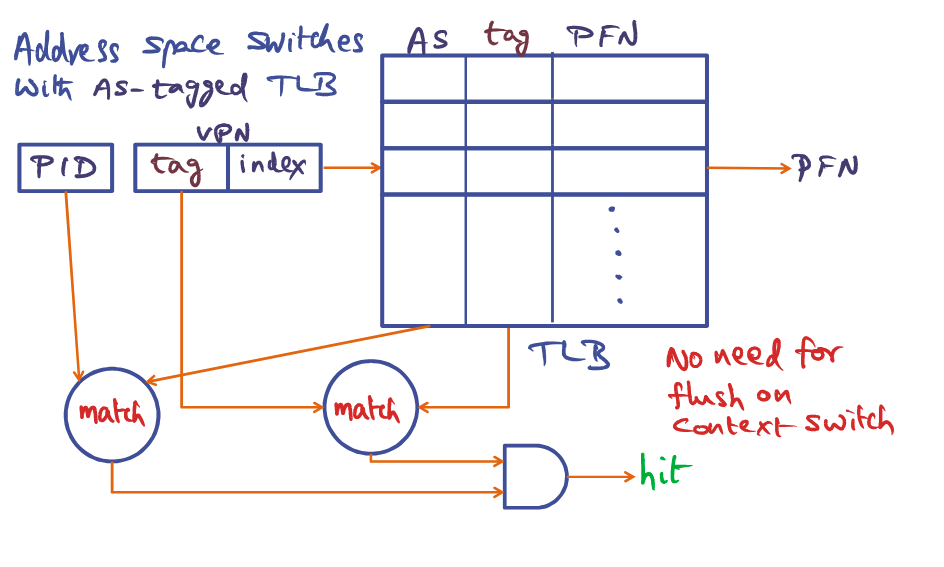 Address space switches
with AS-tagged TLB
AS tag PFN
VPN
PID tag index
PFN
TLB
No need for
flush on
context switch
match
match
hit